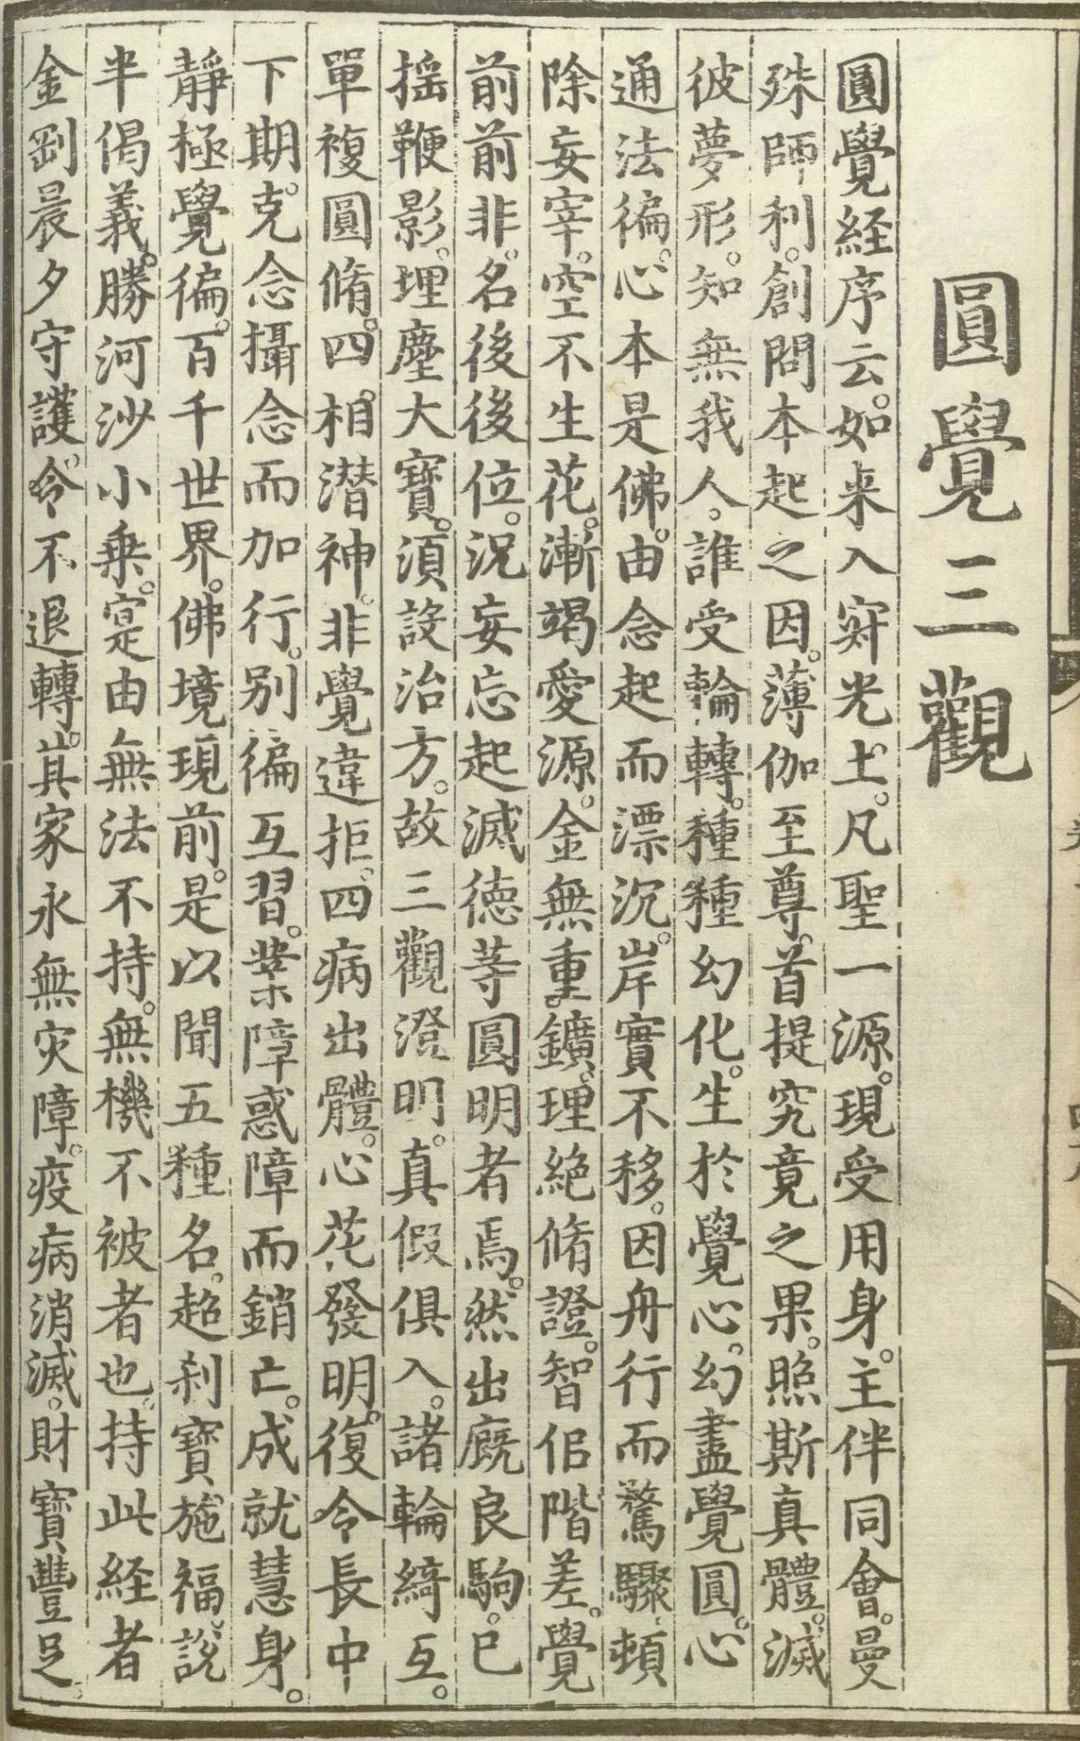 圓覺三觀
圓覺経序云。如来入𡧯光土。凡聖一源。現受用身。主伴同會。曼
殊師利。創問本起之因。薄伽至尊。首提究竟之果。照斯真體。滅
彼夢形。知無我人。誰受輪轉。種種幻化。生於覺心。幻盡覺圓。心
通法徧。心本是佛。由念起而漂沉。岸實不移。因舟行而驚驟。頓
除妄宰。空不生花。漸竭愛源。金無重鑛。理絶脩證。智佀階差。覺
前前非。名後後位。況妄忘起滅德䓁圓明者焉。然出廐良駒。已
揺鞭影。埋塵大寶。須設治方。故三觀澄明。真假俱入。諸輪綺互。
單複圓脩。四相潛神。非覺違拒。四病出體。心花發明。復令長中
下期。克念攝念而加行。别徧互習。業障惑障而銷亡。成就慧身。
静極覺徧。百千世界。佛境現前。是以聞五種名。超刹寶施福。說
半偈義。勝河沙小乗。寔由無法不持。無機不被者也。持此経者
金剛晨夕守護。令不退轉。其家永無灾障。疫病消滅。財寶豐足。